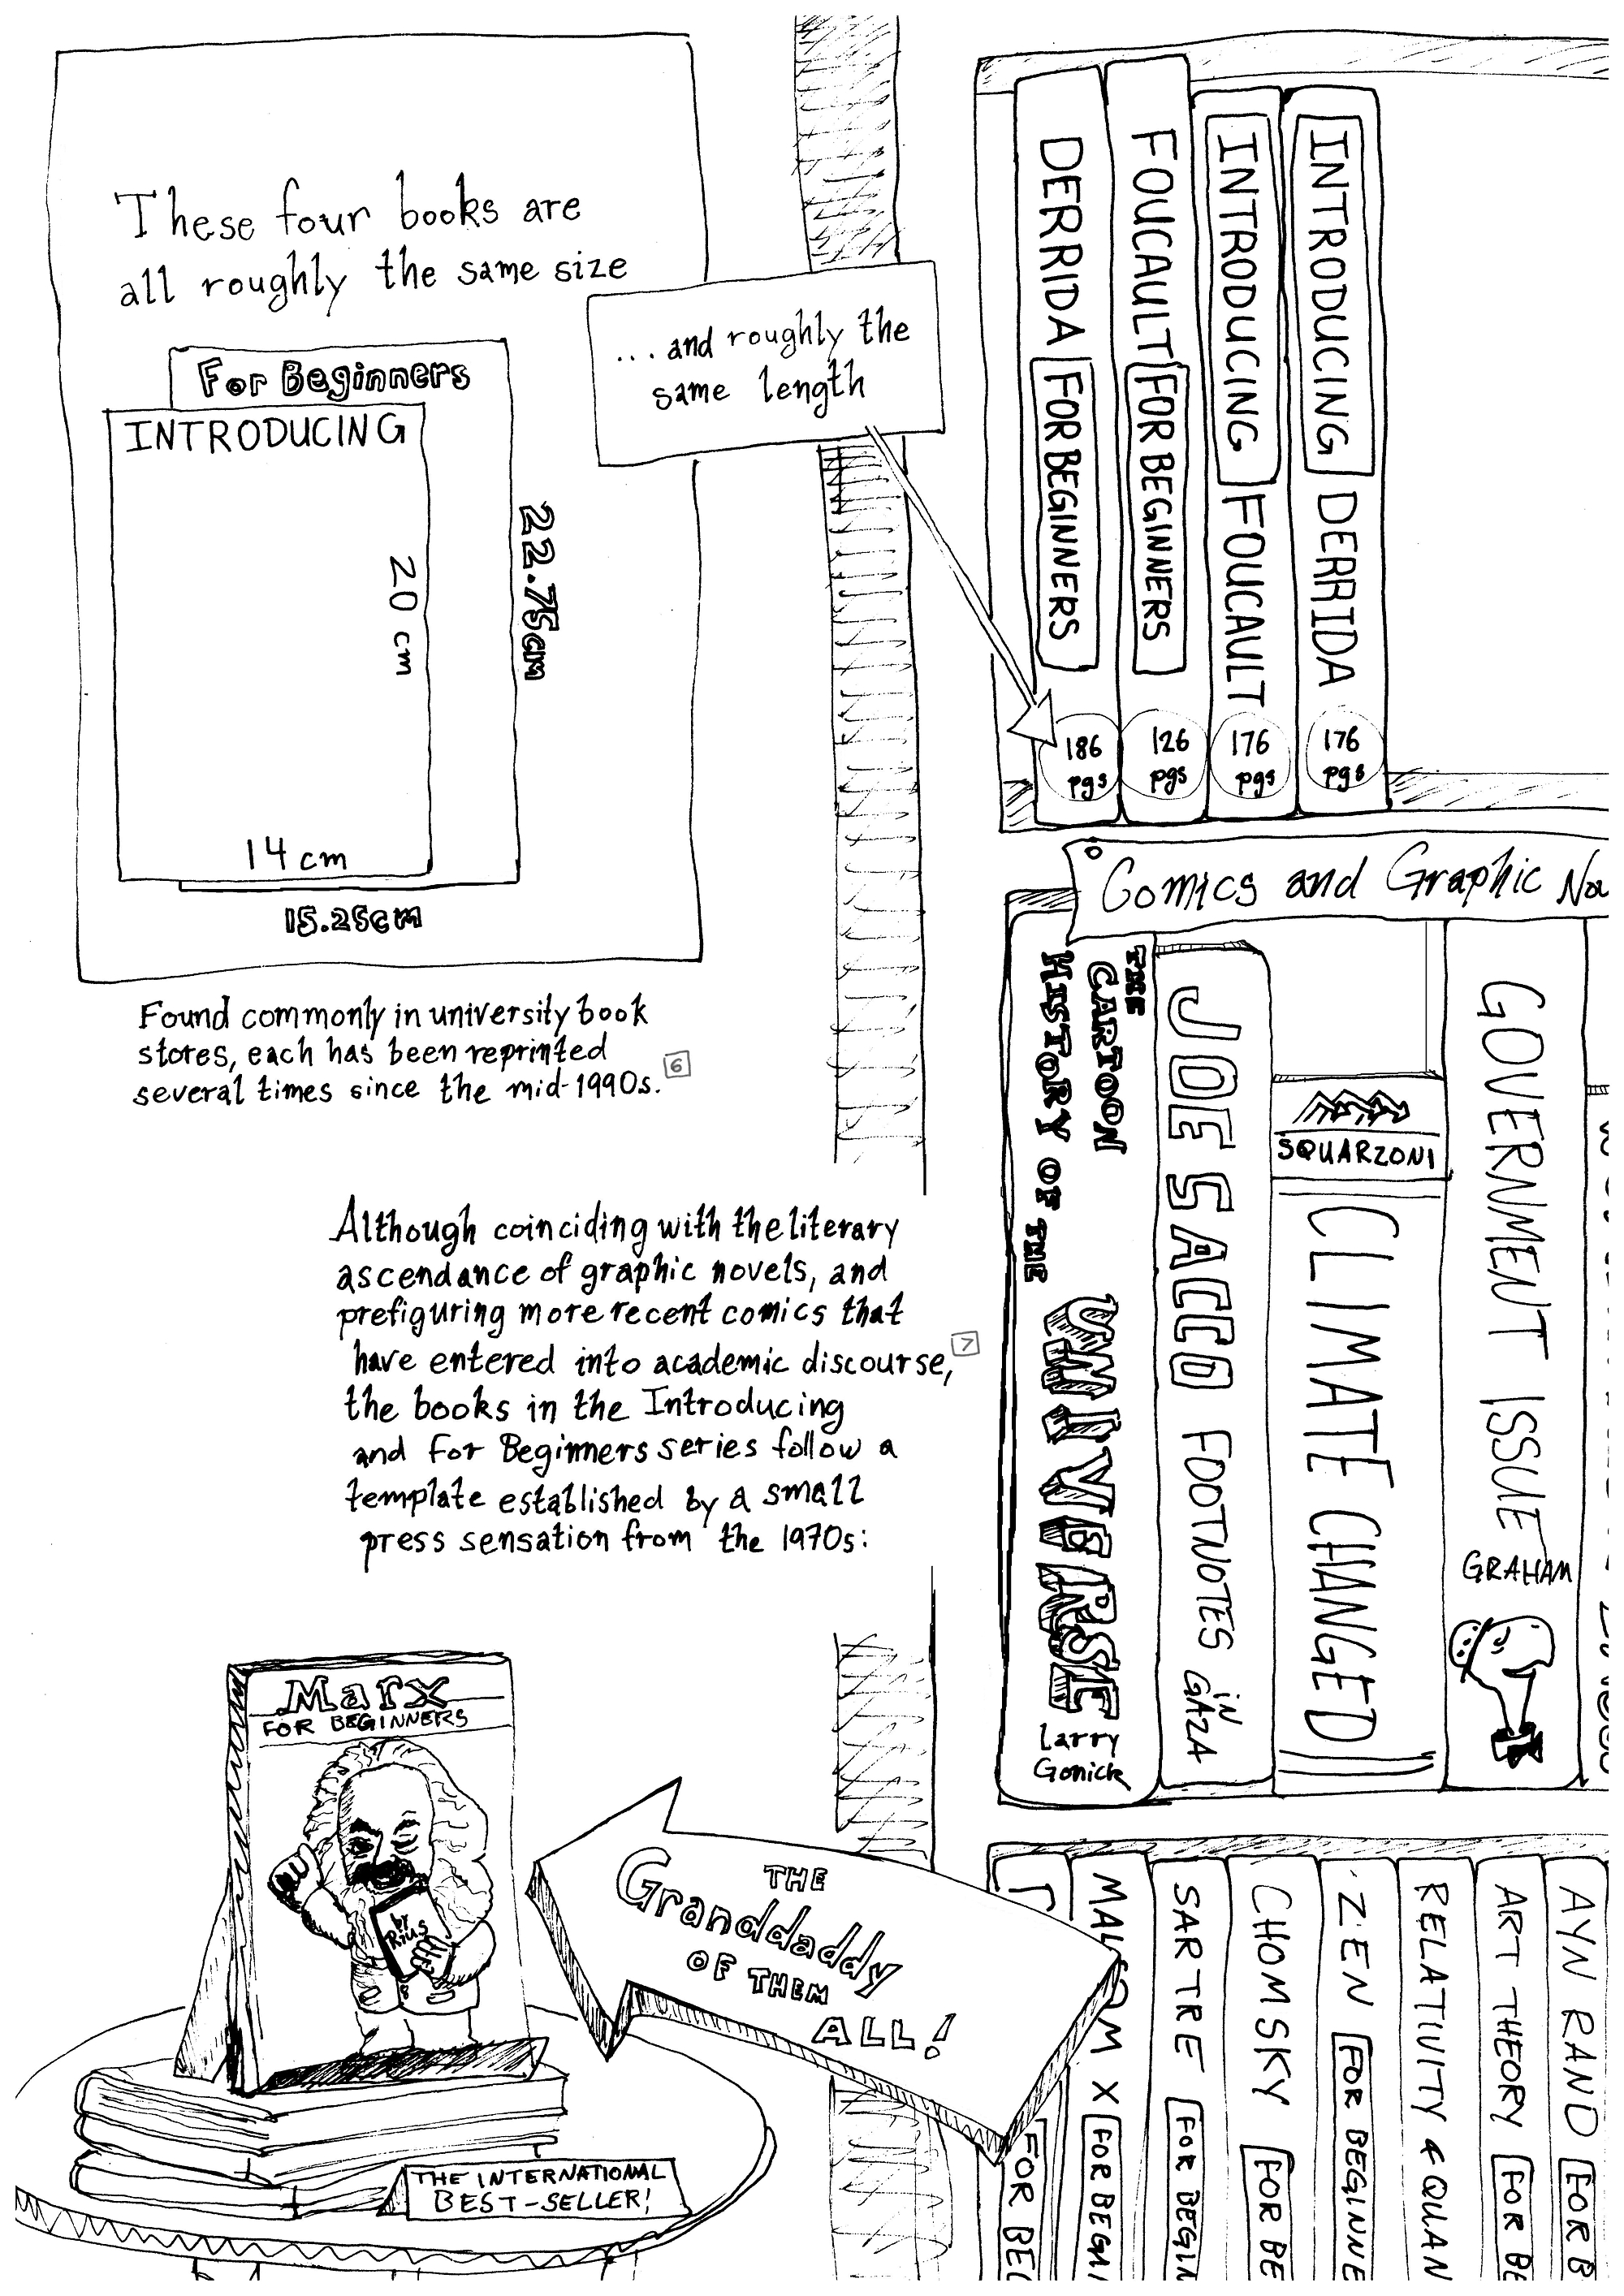 These four books are
all roughly the same size
For Beginners
INTRODUCING
20 cm
22.75cm
14 cm
15.25cm
... and roughly the
same length
DERRIDA FOR BEGINNERS
186
pgs
FOUCAULT FOR BEGINNERS
126
pgs
INTRODUCING FOUCAULT
176
pgs
INTRODUCING DERRIDA
176
pgs
Found commonly in university book
stores, each has been reprinted
several times since the mid-1990s. 6
Although coinciding with the literary
ascendance of graphic novels, and
prefiguring more recent comics that
have entered into academic discourse, 7
the books in the Introducing
and For Beginners series follow a
template established by a small
press sensation from the 1970s:
Comics and Graphic No
THE
CARTOON
HISTORY OF THE
UNIVERSE
Larry
Gonick
JOE SACCO FOOTNOTES IN
GAZA
SQUARZONI
CLIMATE CHANGED
GOVERNMENT ISSUE
GRAHAM
Marx
FOR BEGINNERS
by
Rius
THE
Granddaddy
OF THEM
ALL!
THE INTERNATIONAL
BEST-SELLER!
FOR BEG
MALCOM X FOR BEGIN
SARTRE FOR BEGIN
CHOMSKY FOR BE
ZEN FOR BEGINNE
RELATIVITY & QUAN
ART THEORY FOR BE
AYN RAND FOR B